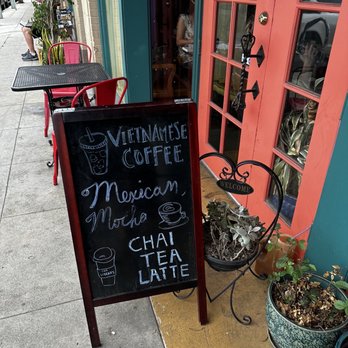 VIETNAMESE
COFFEE
Mexican
Mocha
CHAI
TEA
LATTE
WELCOME